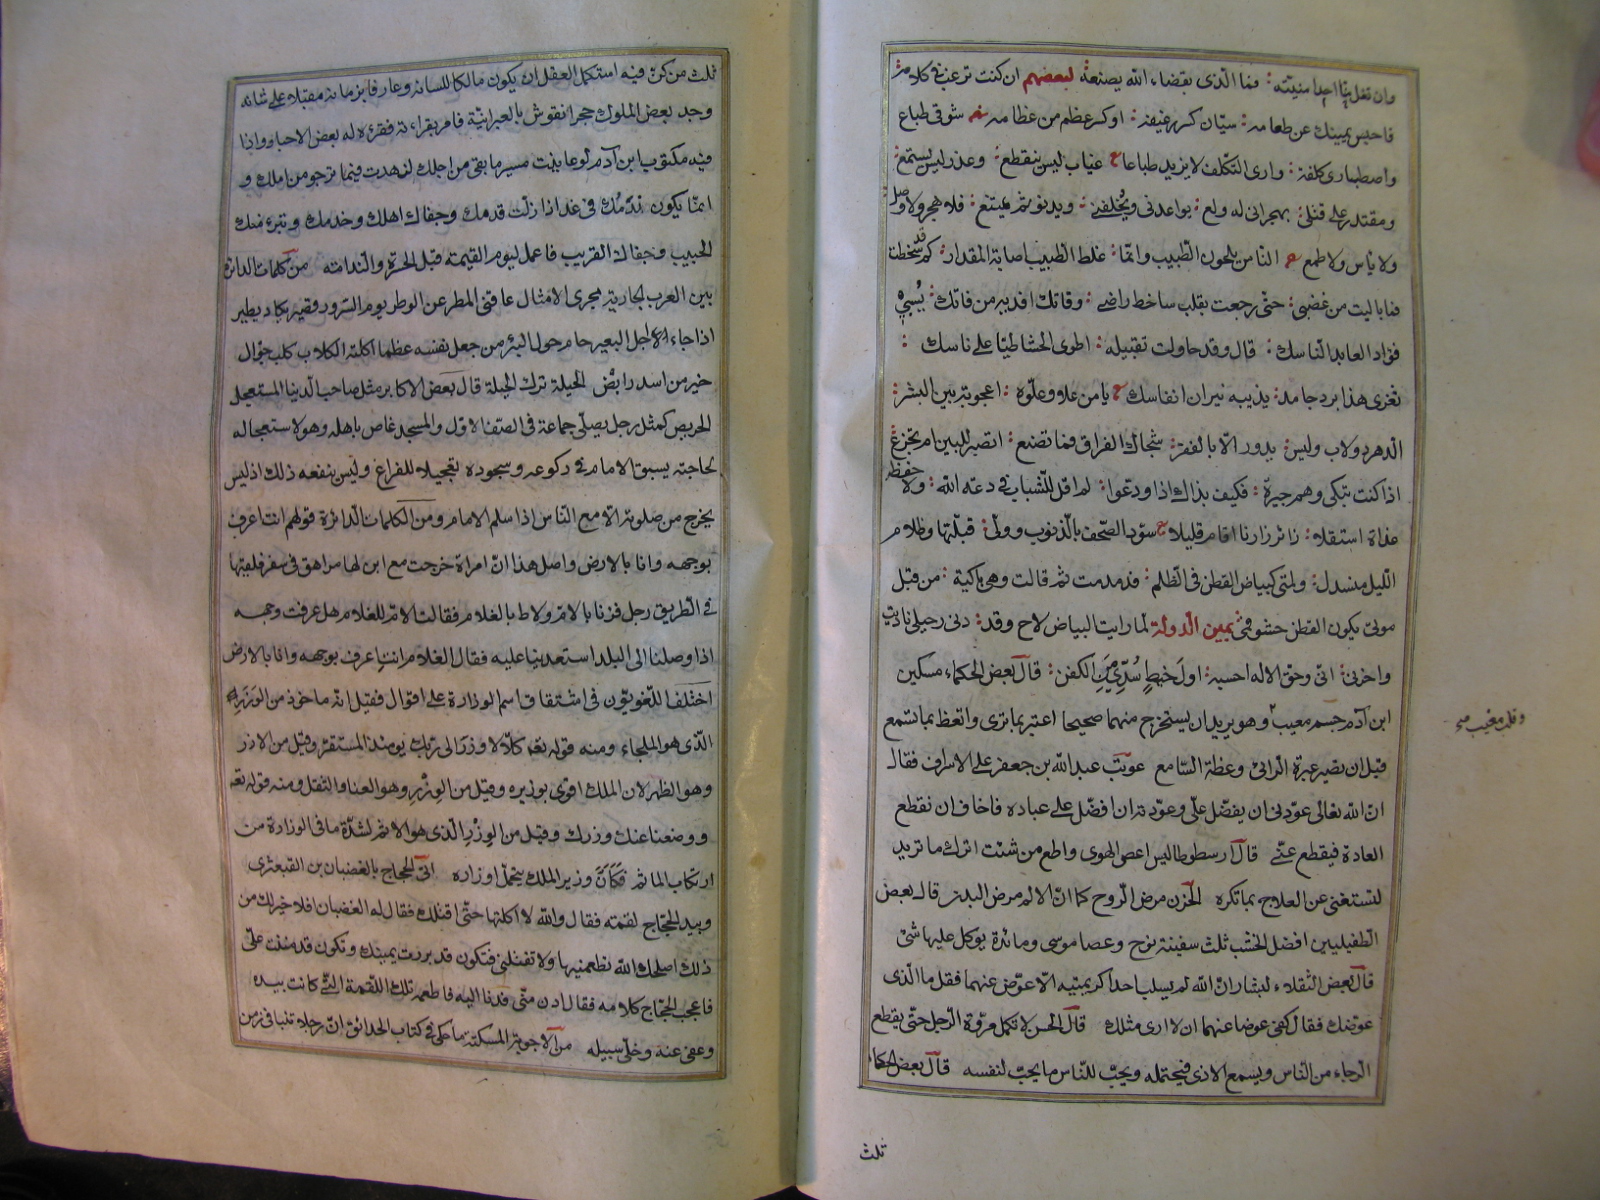 وان تغل بنا احدا منيته : فما الذى بقضاء الله يصنعة لبعضهم ان كنت ترغب فى كلامه
فاحبس يمينك عن طعامه : سيّان كسر رغيفه : او كسر عظم من عظامه شوقى طباع
واصطبارى كلفة : وارى التكلف لا يزيد طباعا ع عتاب ليس ينقطع : وعذر ليس يستمع :
ومقتدر على قتلى : بهجرانى له ولع : يواعدنى ويخلفنى : ويدنو ثم يمتنع : فلا هجر ولا وصل
ولا ياس ولا طمع ع الناس يلحون الطبيب وانما : غلط الطبيب اصابة المقدار : كم قد سخطت
فما باليت من غضبى : حتى رجعت بقلب ساخط راضى : وقاتك افديه من فاتك : يسبى
فؤاد العابد الناسك : قال وقد حاولت تقبيله : اطوى الحشا طيا على ناسك :
تغرى هذا برد جامد : يذيبه نيران انفاسك ع يا من علا وعلوه : اعجوبة بين البشر :
الدهر دولاب وليس : يدور الا بالبقر : شجاك الفراق فما تصنع : اتصبر للبين ام تجزع
اذا كنت تبكى وهم جيرة : فكيف بذاك اذا ودعوا : لم اقل للشباب فى دعة الله : ولا حفظه
غداة استقلا : زائر زارنا اقام قليلا ع سود الصحف بالذنوب وولى : قبلتها وظلام
الليل منسدل : ولمتى كبياض القطن فى الظلم : فدمدمت ثم قالت وهى باكية : من قبل
موتى يكون القطن حشو فمى يمين الدولة لما رايت البياض لاح وقد : دنى رحيلى ناديت
واحزنى : انى وحق الاله احسبه : اول خيط سدى من الكفن : قال بعض الحكماء مسكين
ابن آدم جسم معيب وهو يريد ان يستخرج منهما صحيحا اعتبر بما ترى واتعظ بما تسمع
وقلب معيب صح
قبل ان تصير عبرة الرائى وعظة السامع عوتب عبد الله بن جعفر على الاسراف فقال
ان الله تعالى عودنى ان يفضل على وعودته ان افضل على عباده فاخاف ان نقطع
العادة فيقطع عنى قال ارسطوطاليس اعص الهوى واطع من شئت اترك ما تريد
لتستغنى عن العلاج بما تكره الحزن مرض الروح كما ان الالم مرض البدن قال بعض
الطفيليين افضل الخشب ثلث سفينة نوح وعصا موسى ومائدة يوكل عليها شئ
قال بعض الثقلاء لبشار ان الله لم يسلب احدا كريمتيه الا عوض عنهما فقل ما الذى
عوضك فقال كفى عوضا عنهما ان لا ارى مثلك قال الحسن لا تكمل مروة الرجل حتى يقطع
الرجاء من الناس ويسمع الاذى فيحتمله ويحب للناس ما يحب لنفسه قال بعض الحكماء
ثلث
ثلث من كن فيه استكمل العقل ان يكون مالكا للسانه وعارفا بزمانه مقبلا على شانه
وجد بعض الملوك حجرا نقوش بالعبرانية فامر بقراءته فقرءه له بعض الاحبار واذا
فيه مكتوب ابن آدم لو عاينت مسير ما بقى من اجلك لزهدت فيما ترجو من املك و
انما يكون ندمك فى غد اذا زلت قدمك وجفاك اهلك وخدمك وتبرء منك
الحبيب وجفاك القريب فاعمل ليوم القيمة قبل الحسرة والندامة من كلمات الدائرة
بين العرب الجارية مجرى الامثال عاقنى المطر عن الوطر يوم السرور قصير يكاد يطير
اذا جاء اجل البعير حام حول البئر من جعل نفسه عظما اكلته الكلاب كلب جوال
خير من اسد رابض الحيلة ترك الحيلة قال بعض الاكابر مثل صاحب الدنيا المستعجل
الحريص كمثل رجل يصلى جماعة فى الصف الاول والمسجد غاص باهله وهو لاستعجاله
لحاجته يسبق الامام فى ركوعه وسجوده تعجيلا للفراغ وليس ينفعه ذلك اذ ليس
يخرج من صلوته الا مع الناس اذا سلم الامام ومن الكلمات الدائرة قولهم انت اعرف
بوجهه وانا بالارض واصل هذا ان امراة خرجت مع ابن لها مراهق فى سفر فلقيهما
فى الطريق رجل فزنا بالام ولاط بالغلام فقالت الام للغلام هل عرفت وجهه
اذا وصلنا الى البلد استعدينا عليه فقال الغلام انت اعرف بوجهه وانا بالارض
اختلف اللغويون فى اشتقاق اسم الوزارة على اقوال فقيل انه ماخوذ من الوزر
الذى هو الملجاء ومنه قوله تعه كلا لا وزر الى ربك يومئذ المستقر وقيل من الازر
وهو الظهر لان الملك اقوى بوزيره وقيل من الوزر وهو العناء والثقل ومنه قوله تعه
ووضعنا عنك وزرك وقيل من الوزر الذى هو الاثم لشدة ما فى الوزارة من
ارتكاب الماثم فكان وزير الملك يتحمل اوزاره اتى الحجاج بالغضبان بن القبعثرى
وبيد الحجاج لقمة فقال والله لا اكلتها حتى اقتلك فقال له الغضبان افلا خير لك من
ذلك اصلحك الله تطعمنيها ولا تقتلنى فتكون قد بررت يمينك وتكون قد مننت على
فاعجب الحجاج كلامه فقال ادن منى فدنا اليه فاطعمه تلك اللقمة التى كانت بيده
وعفى عنه وخلى سبيله من الاجوبة المسكتة ما حكى فى كتاب الحدائق ان رجلا تنبا فى زمن